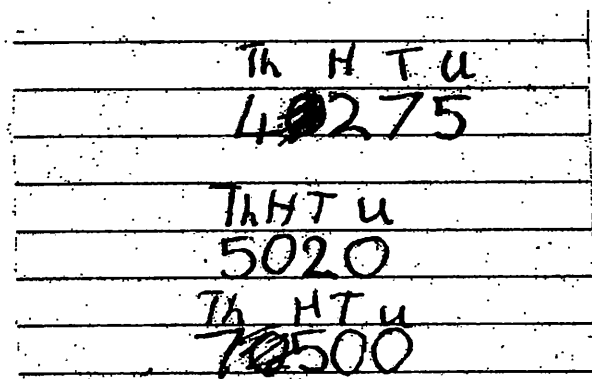 Th H T U
4275
Th H T U
5020
Th H T U
7500